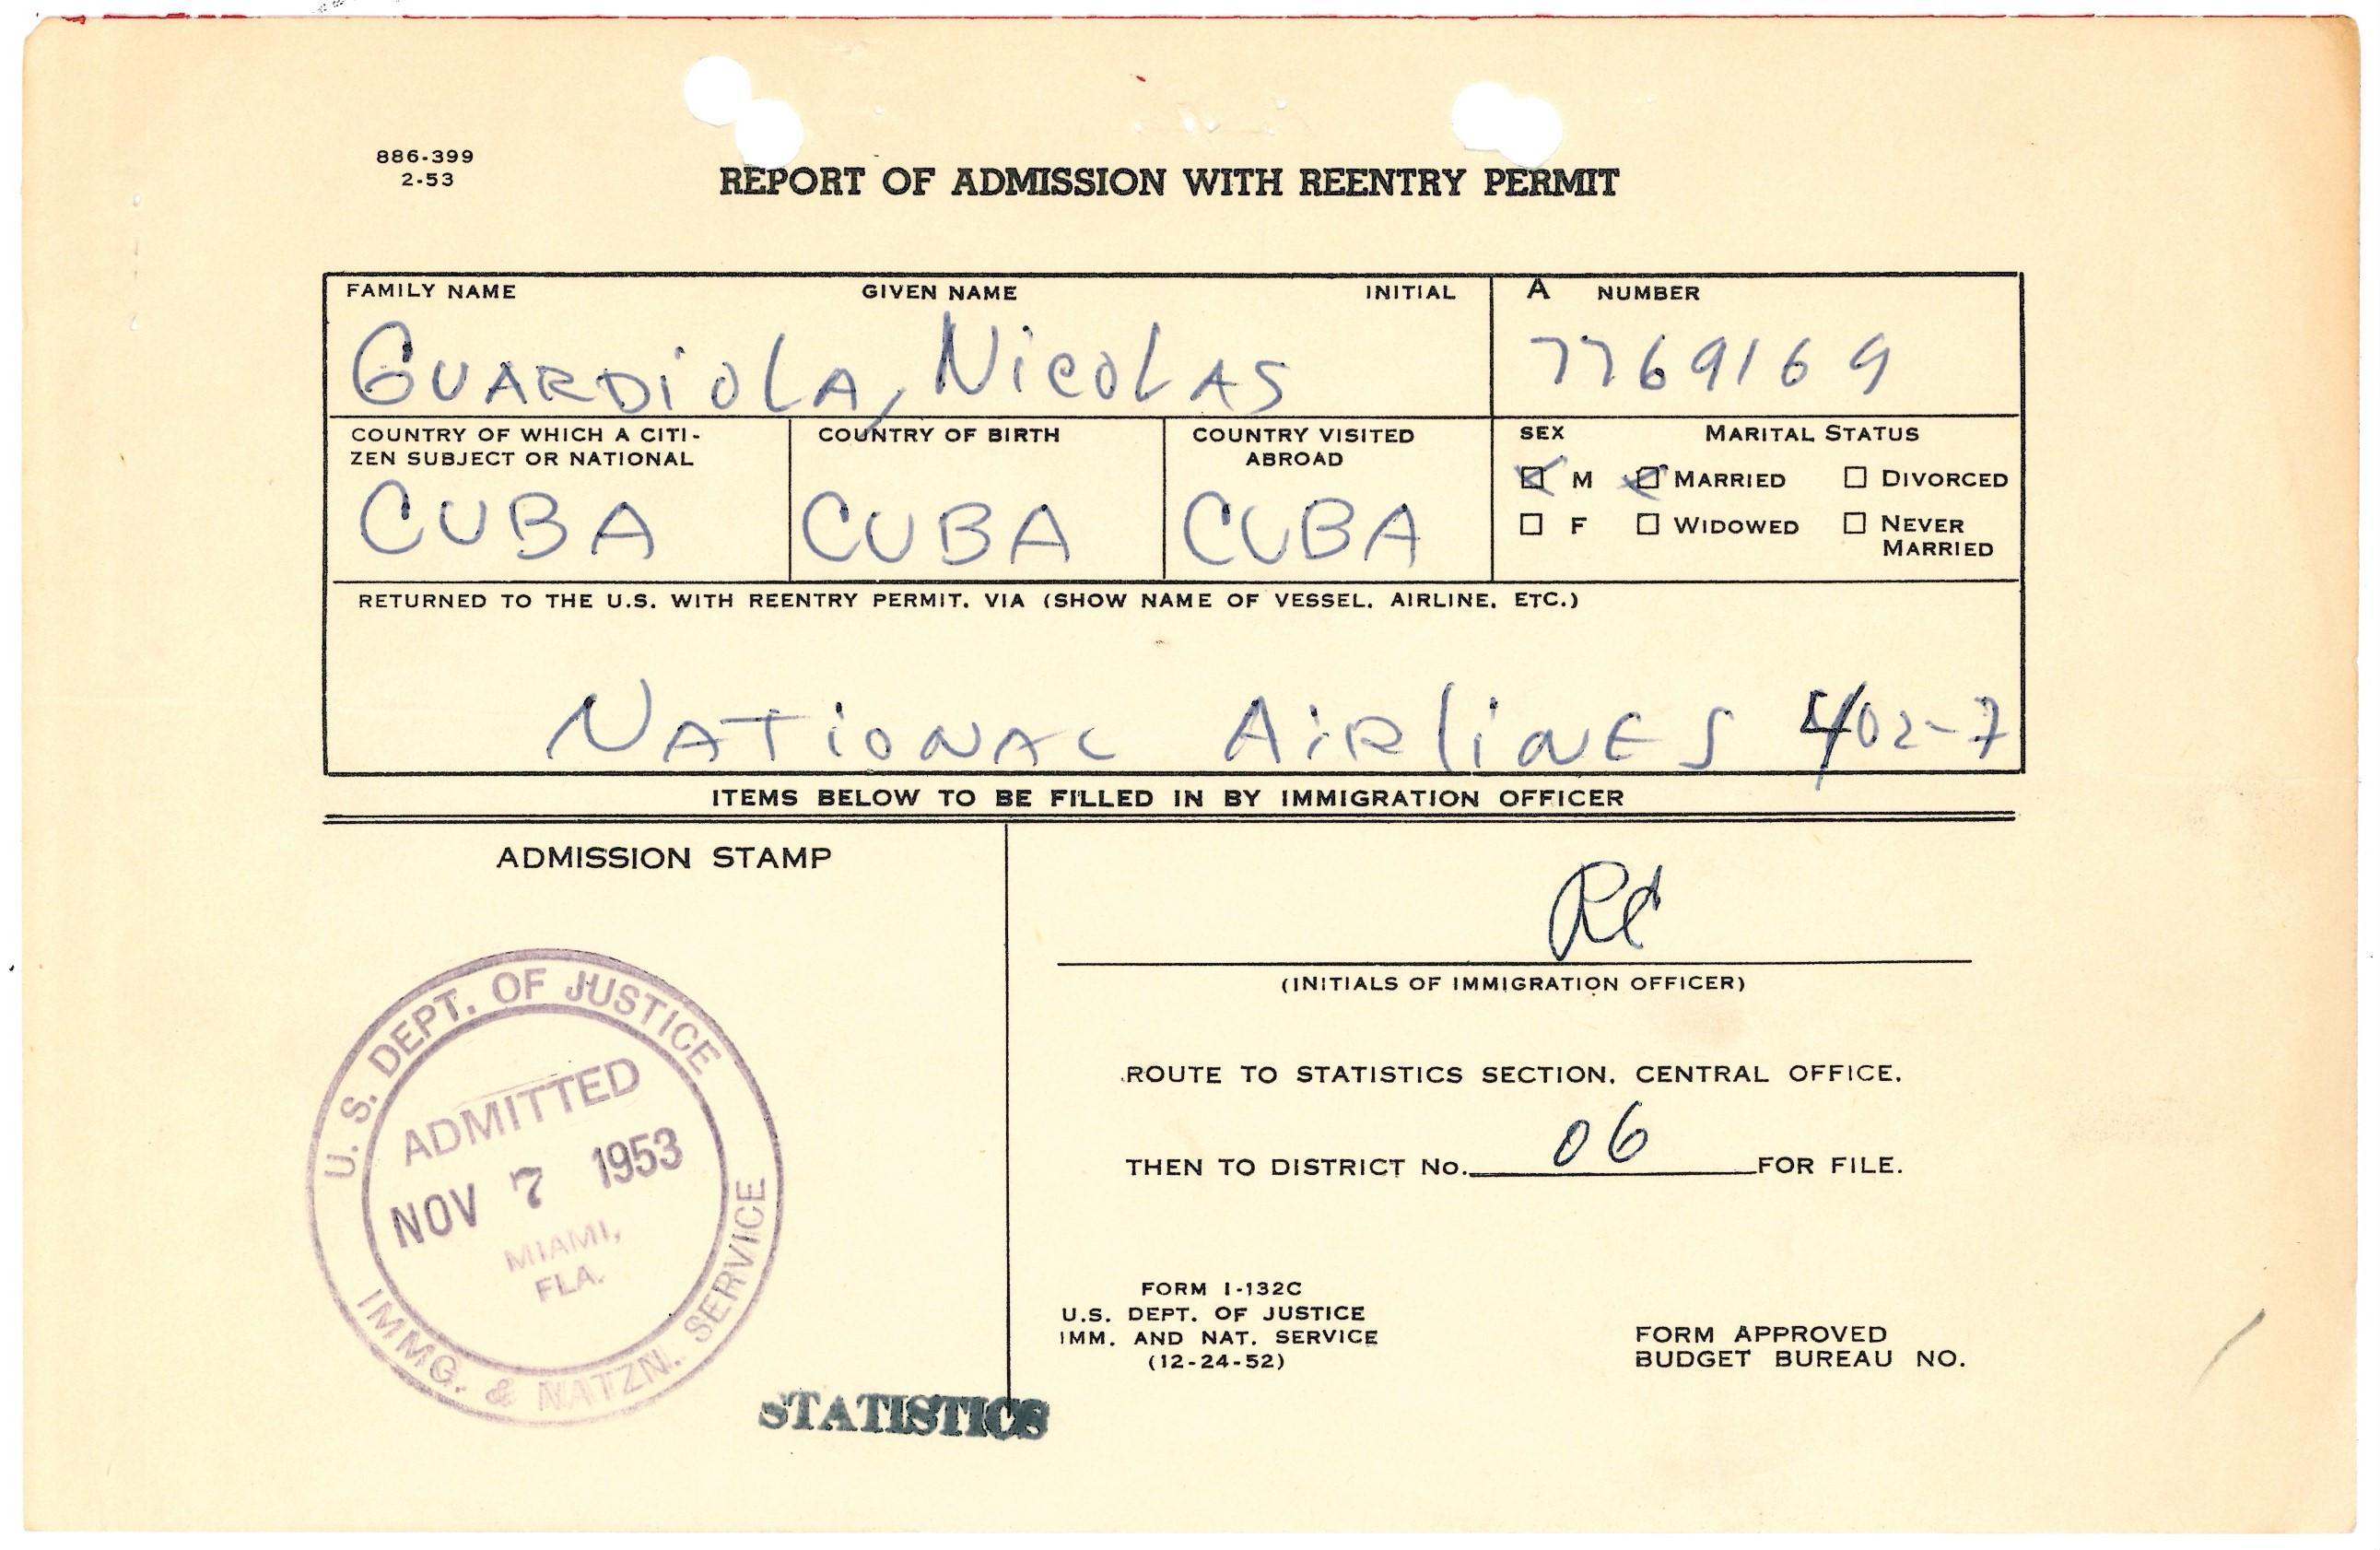 886-399
2-53
REPORT OF ADMISSION WITH REENTRY PERMIT
FAMILY NAME GIVEN NAME INITIAL A NUMBER
GUARDIOLA, NICOLAS 7769169
COUNTRY OF WHICH A CITI-
ZEN SUBJECT OR NATIONAL
CUBA
COUNTRY OF BIRTH
CUBA
COUNTRY VISITED
ABROAD
CUBA
SEX MARITAL STATUS
M MARRIED DIVORCED
F WIDOWED NEVER
MARRIED
RETURNED TO THE U.S. WITH REENTRY PERMIT, VIA (SHOW NAME OF VESSEL, AIRLINE, ETC.)
NATIONAL AIRLINES 402-7
ITEMS BELOW TO BE FILLED IN BY IMMIGRATION OFFICER
ADMISSION STAMP
U. S. DEPT. OF JUSTICE
ADMITTED
NOV 7 1953
MIAMI,
FLA.
IMMG. & NATZN. SERVICE
STATISTICS
RC
(INITIALS OF IMMIGRATION OFFICER)
ROUTE TO STATISTICS SECTION, CENTRAL OFFICE,
THEN TO DISTRICT No. 06 FOR FILE.
FORM I-132C
U.S. DEPT. OF JUSTICE
IMM. AND NAT. SERVICE
(12-24-52)
FORM APPROVED
BUDGET BUREAU NO.